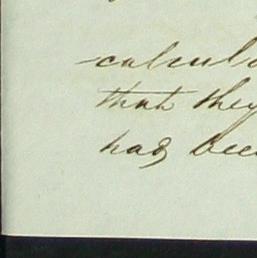 calcul
that they
had bee